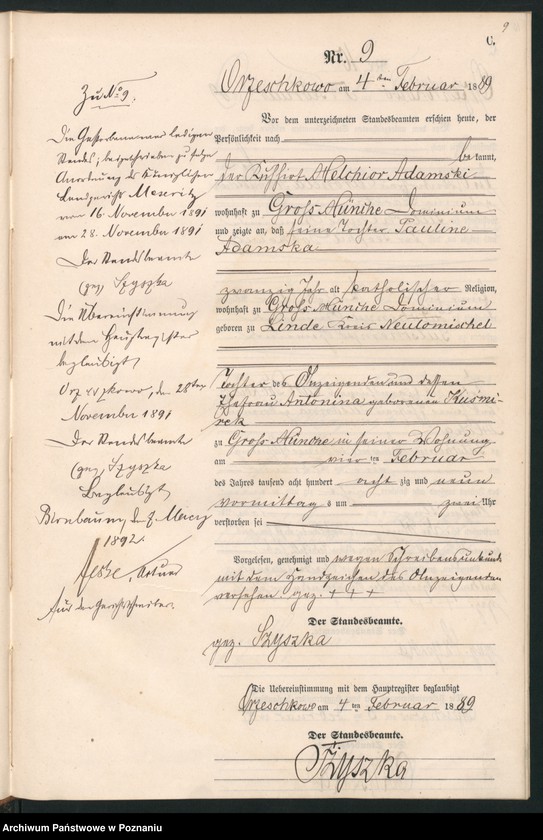 9
C.
Nr. 9
Orzeschkowo am 4ten Februar 1889
Vor dem unterzeichneten Standesbeamten erschien heute, der
Persönlichkeit nach
bekannt,
der Kuhhirt Melchior Adamski
wohnhaft zu Gross Münche Dominium
und zeigte an, daß seine Tochter Pauline
Adamska
zwanzig Jahr alt katholischer Religion,
wohnhaft zu Gross Münche Dominium
geboren zu Linde Kreis Neutomischel
Tochter des Anzeigenden und dessen
Ehefrau Antonina geborenen Kuśmi-
rek
zu Gross Münche in seiner Wohnung
am vier ten Februar
des Jahres tausend acht hundert acht zig und neun
Vormittag s um zwei Uhr
verstorben sei
Vorgelesen, genehmigt und wegen Schreibensunkunde
mit dem Handzeichen des Anzeigenden
versehen. gez. + + +
Der Standesbeamte.
gez. Szyszka
Die Uebereinstimmung mit dem Hauptregister beglaubigt
Orzeschkowo am 4 ten Februar 1889
Der Standesbeamte.
Szyszka
Zu No 9.
Die Gestorbene war ledigen
Standes, beigeschrieben zu folge
Anordnung des Königlichen
Landgerichts Meseritz
vom 16 November 1891
am 28. November 1891
Der Standesbeamte
(gez) Szyszka
Die Übereinstimmung
mit dem Hauptregister
beglaubigt,
Orzeschkowo, den 28ten
November 1891
Der Standesbeamte
(gez) Szyszka
Beglaubigt,
Birnbaum, den 8. Maerz
1892.
für den Gerichtsschreiber.
Archiwum Państwowe w Poznaniu